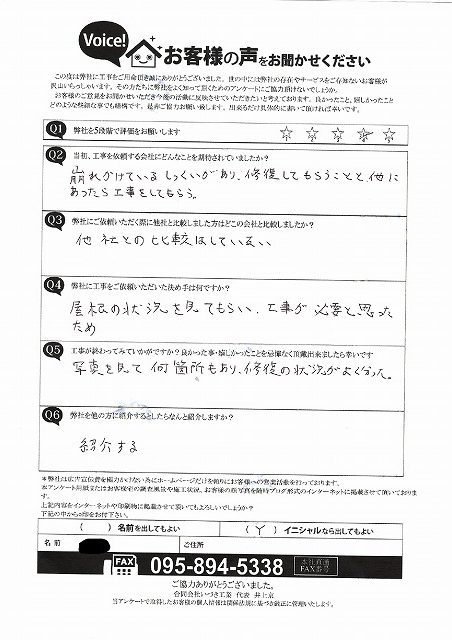 Voice!
お客様の声をお聞かせください
この度は弊社に工事をご用命頂き誠にありがとうございました。世の中には弊社の存在やサービスをご存知ないお客様が
沢山いらっしゃいます。その方たちに弊社をよく知って頂くためのアンケートにご協力頂けないでしょうか。
お客様のご意見をお聞かせいただき今後の活動に反映させていただきたいと考えております。良かったこと、嬉しかったこと
どのような些細な事でも結構です。是非ご協力お願い致します。出来るだけ具体的に書いて頂ければ幸いです。
Q1
弊社を5段階で評価をお願いします
☆ ☆ ☆ ☆ ☆
Q2
当初、工事を依頼する会社にどんなことを期待されていましたか?
崩れかけているしっくいがあり、修復してもらうことと他に
あったら工事をしてもらう。
Q3
弊社にご依頼いただく際に他社と比較しました方はどこの会社と比較しましたか?
他社との比較はしていない
Q4
弊社に工事をご依頼いただいた決め手は何ですか?
屋根の状況を見てもらい、工事が必要と思った
ため
Q5
工事が終わってみていかがですか?良かった事・嬉しかったことを忌憚なく頂戴出来ましたら幸いです
写真を見て何箇所もあり、修復の状況がよくわかった。
Q6
弊社を他の方に紹介するとしたらなんと紹介しますか?
紹介する
*弊社は広告宣伝費を極力かけない為にホームページだけを頼りにお客様への営業活動を行っております。
本アンケート用紙またはお客様宅の調査風景や施工状況、お客様の顔写真を随時ブログ形式のインターネットに掲載させて頂いておりま
す。
上記内容をインターネットや印刷物に掲載させて頂いてもよろしいでしょうか?
下記の中から○印をお付下さい。
( ) 名前を出してもよい
( Y ) イニシャルなら出してもよい
名 前
ご住所
FAX
095-894-5338
本社直通
FAX番号
ご協力ありがとうございました。
合同会社いづき工業 代表 井上京
当アンケートで取得したお客様の個人情報は関係法規に基づき厳正に管理いたします。